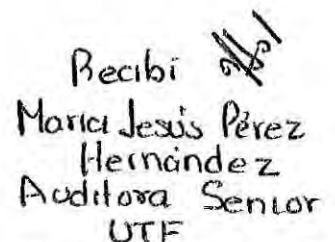 Recibi
María Jesús Pérez
Hernández
Auditora Senior
UTF